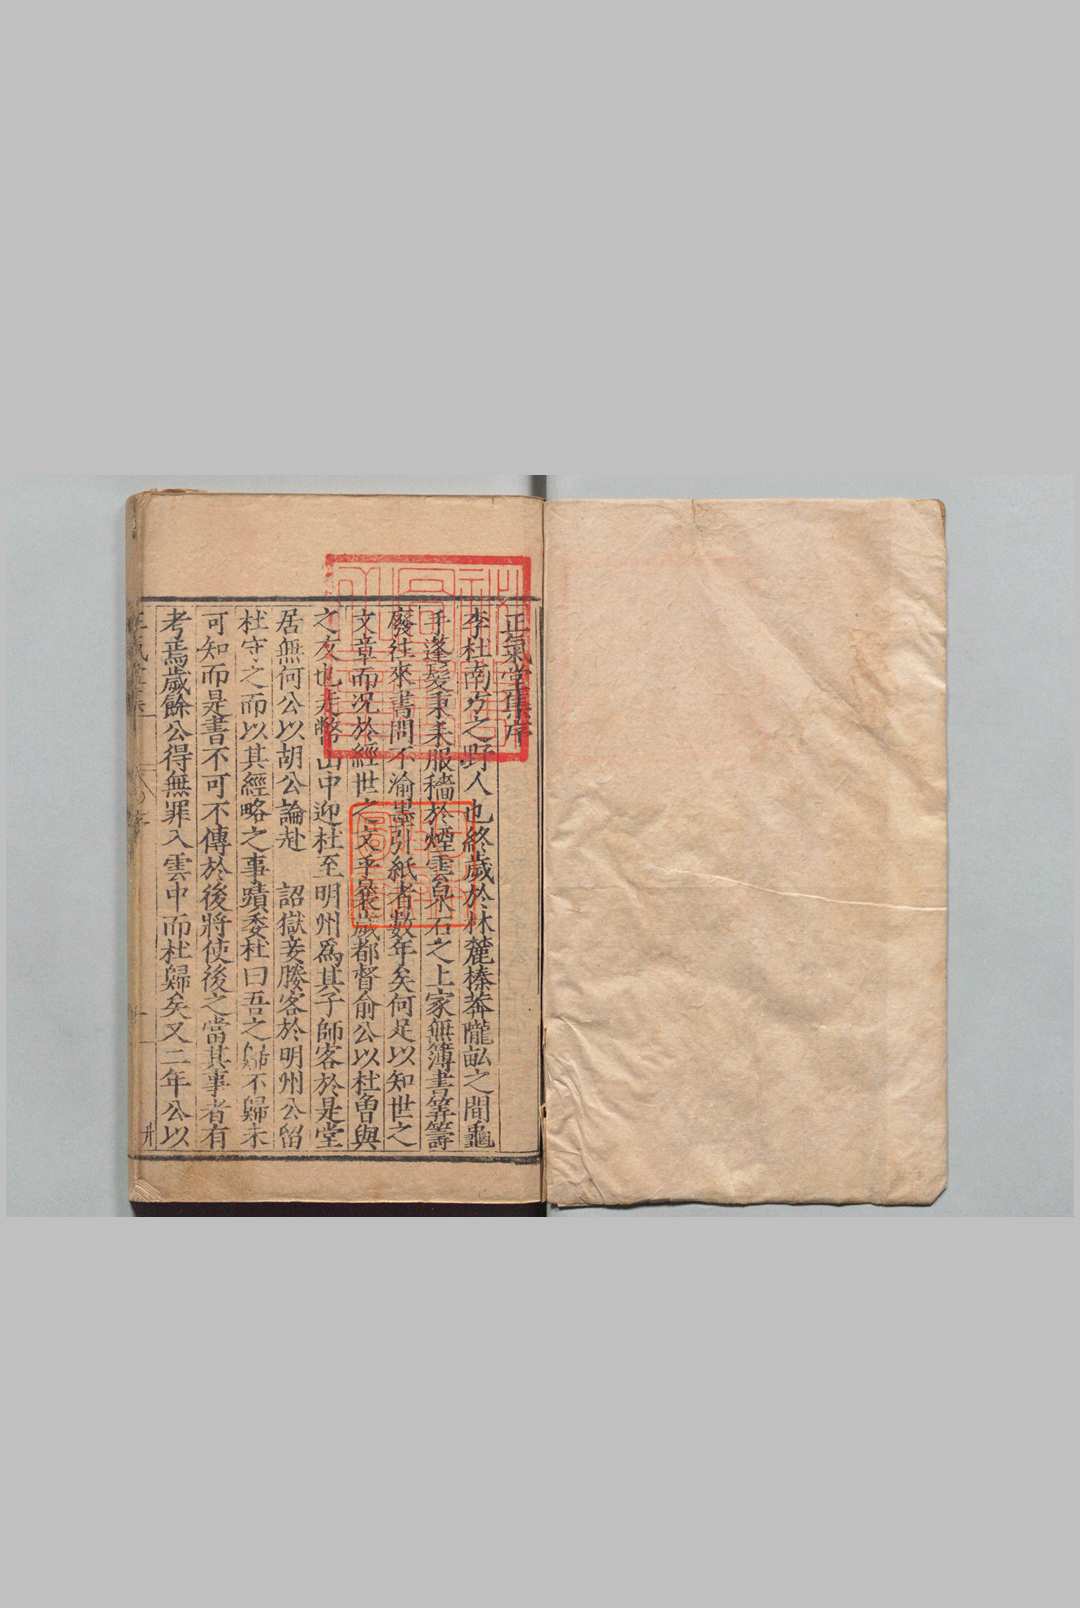 正氣堂集序
李杜南方之野人也終歲於林麓榛莽隴畝之間龜
手蓬髮秉耒服穡於煙雲泉石之上家無簿書筭籌
廢往來書問不渝墨引紙者數年矣何足以知世之
文章而况於經世之文乎曩歲都督俞公以杜魯與
之友也走幣山中迎杜至明州爲其子師客於是堂
居無何公以胡公論赴 詔獄妾媵客於明州公留
杜守之而以其經略之事蹟委杜曰吾之歸不歸未
可知而是書不可不傳於後將使後之當其事者有
考焉歲餘公得無罪入雲中而杜歸矣又二年公以